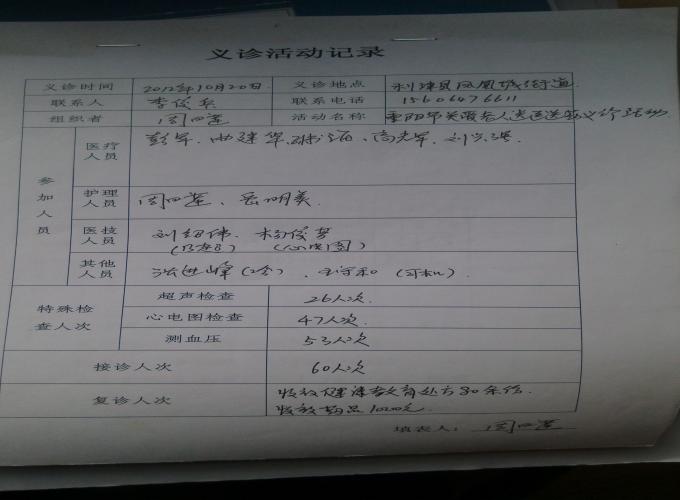 义诊活动记录
义诊时间 2012年10月20日 义诊地点 利津县凤凰城街道
联系人 李俊兵 联系电话 15606476611
组织者 周四莲 活动名称 重阳节关爱老人送医送药义诊活动
参加人员
医疗人员 彭军、曲建华、 高光军、刘
护理人员 周四莲、岳明美
医技人员 刘绍伟 杨俊梦
(B超) (心电图)
其他人员 张进峰 (司机)
特殊检查人次 超声检查 26人次
心电图检查 47人次
测血压 53人次
接诊人次 60人次
复诊人次 发放健康教育处方80余份
发放药品1000元
填表人: 周四莲